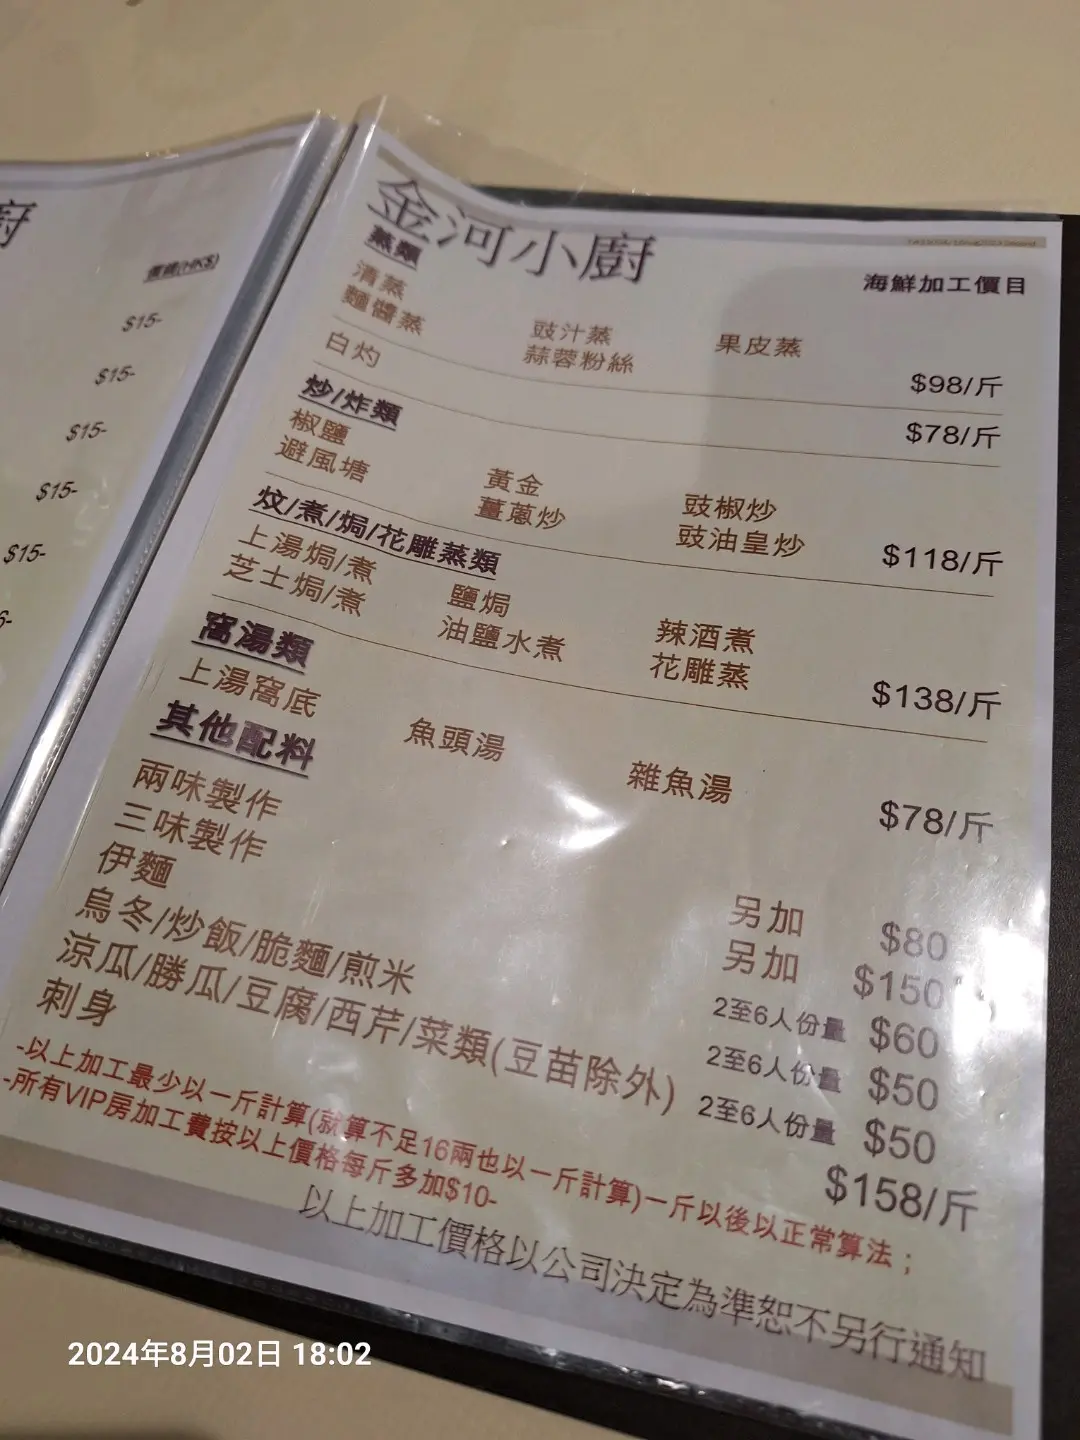 廚
價錢(HK$)
$15-
$15-
$15-
$15-
$15-
金河小廚
海鮮加工價目
蒸類
清蒸 豉汁蒸 果皮蒸
麵醬蒸 蒜蓉粉絲 $98/斤
白灼 $78/斤
炒/炸類
椒鹽 黃金 豉椒炒
避風塘 薑蔥炒 豉油皇炒 $118/斤
炆/煮/焗/花雕蒸類
上湯焗/煮 鹽焗 辣酒煮
芝士焗/煮 油鹽水煮 花雕蒸 $138/斤
窩湯類
上湯窩底 魚頭湯 雜魚湯 $78/斤
其他配料
兩味製作 另加 $80
三味製作 另加 $150
伊麵 2至6人份量 $60
烏冬/炒飯/脆麵/煎米 2至6人份量 $50
涼瓜/勝瓜/豆腐/西芹/菜類(豆苗除外) 2至6人份量 $50
刺身 $158/斤
-以上加工最少以一斤計算(就算不足16兩也以一斤計算)一斤以後以正常算法；
-所有VIP房加工費按以上價格每斤多加$10-
以上加工價格以公司決定為準恕不另行通知
2024年8月02日 18:02